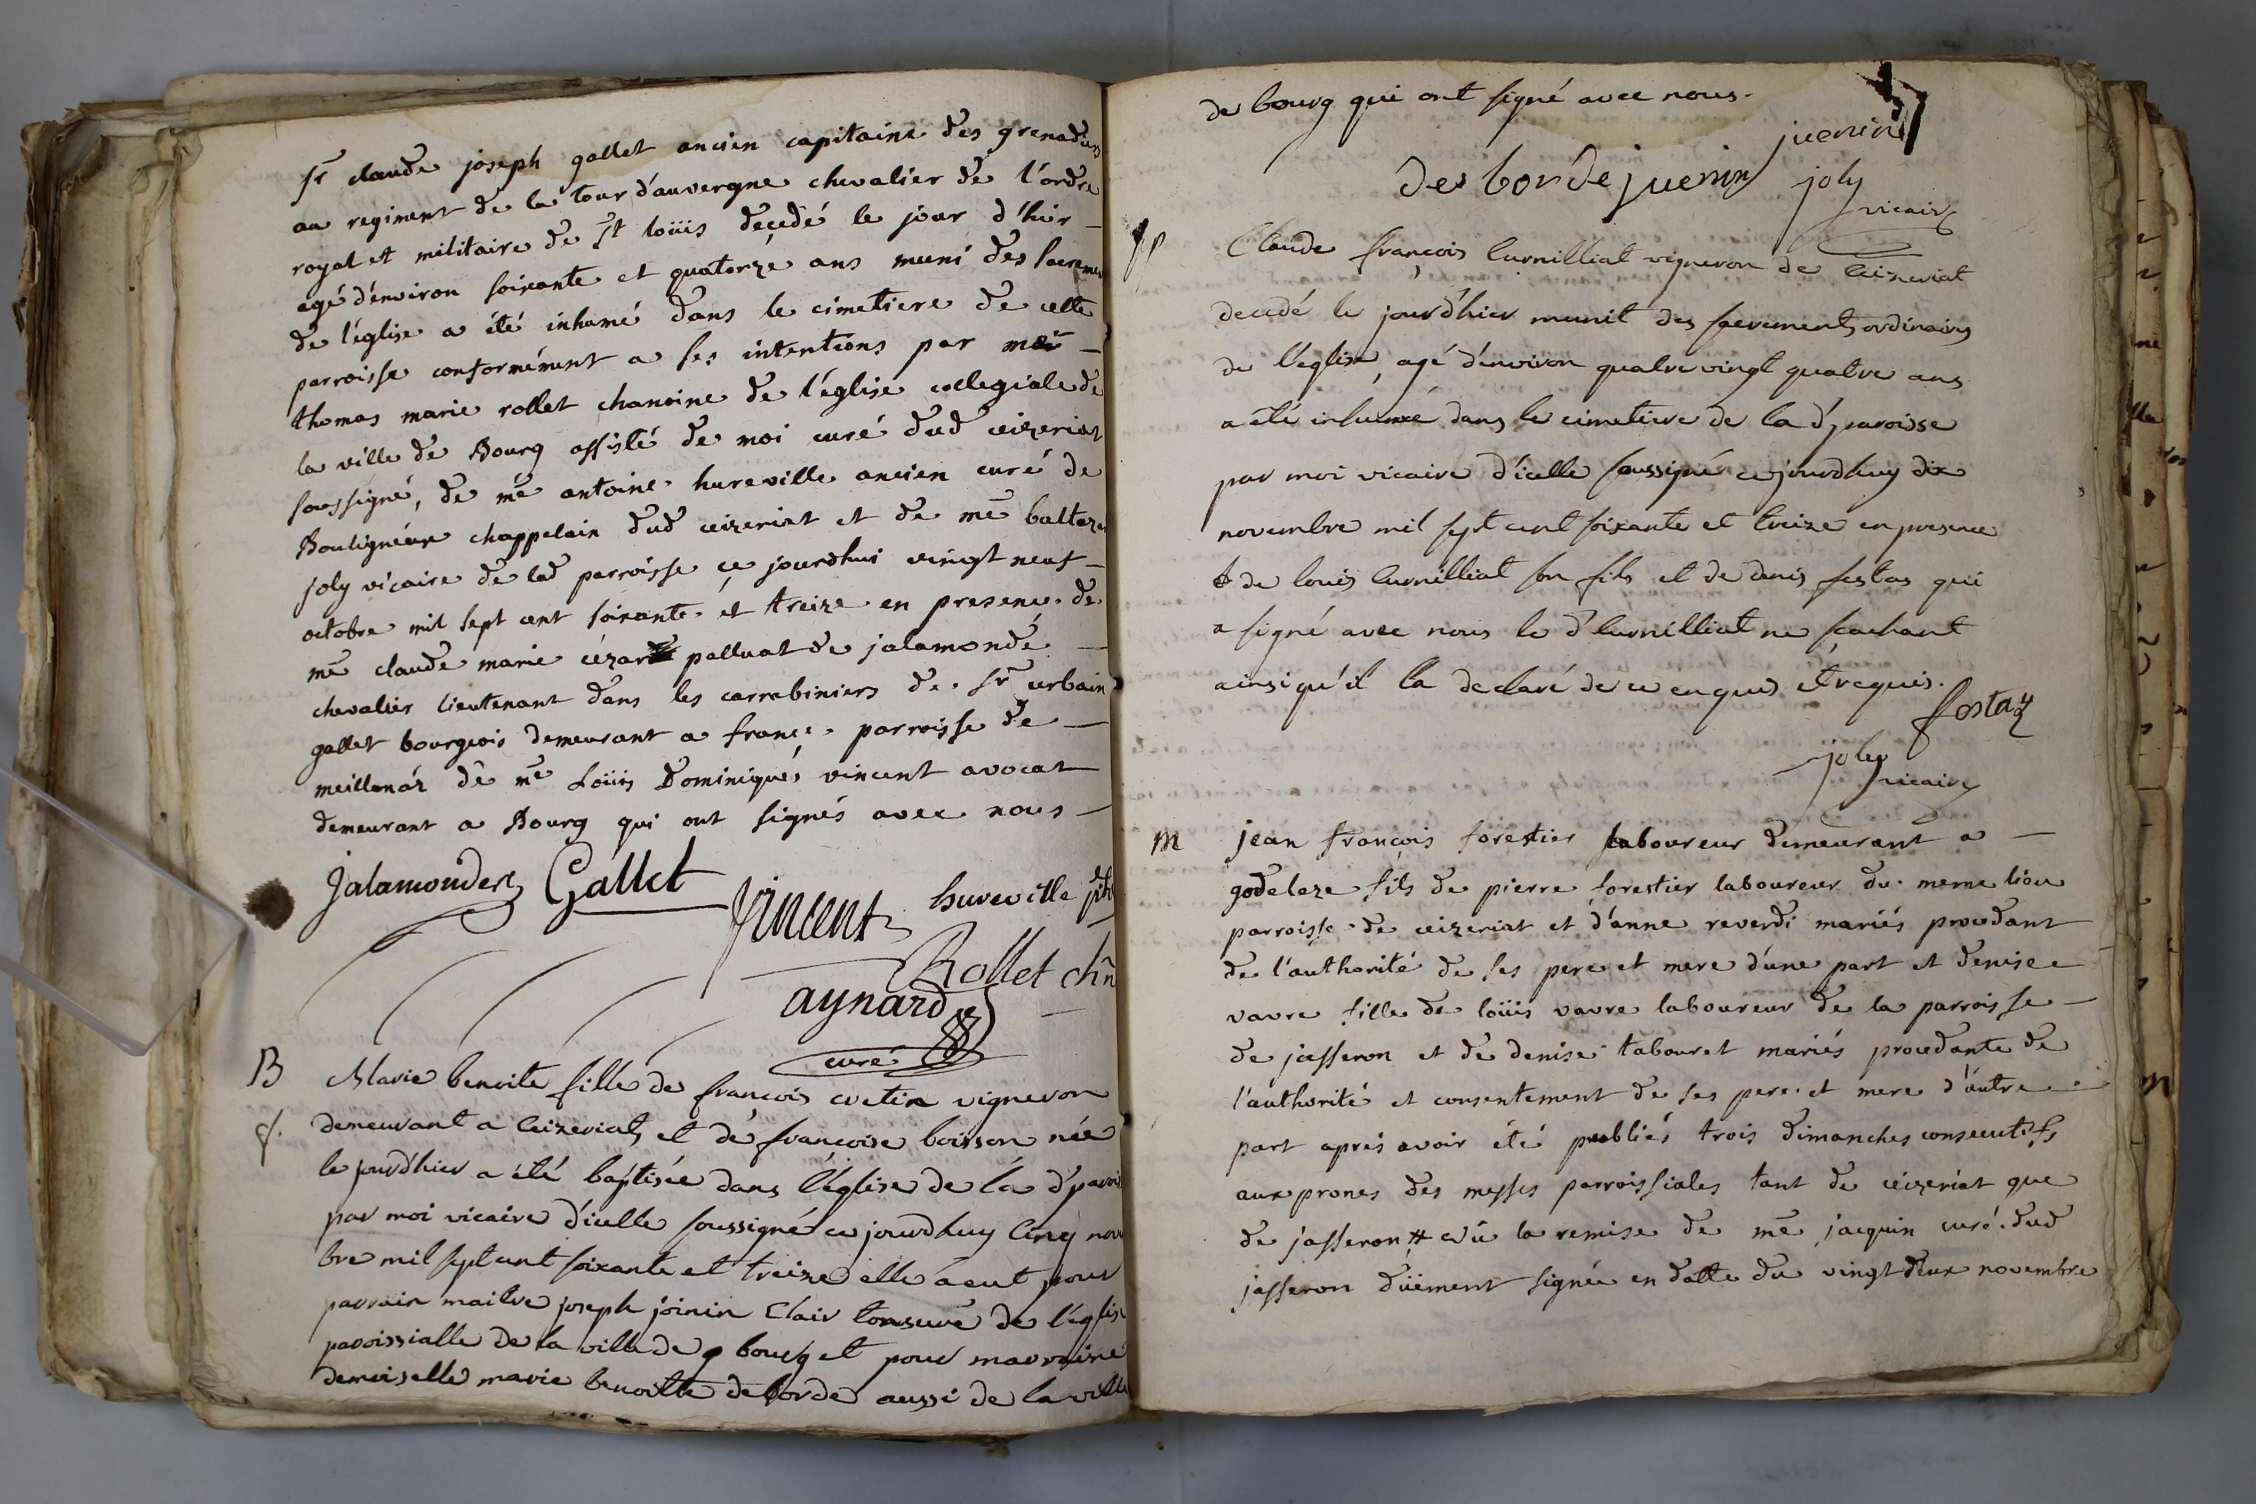 sr claude joseph gallet ancien capitaine des grenadiers
au regiment de la tour d'auvergne chevalier de l'ordre
royal et militaire de st loüis decedé le jour d'hier
agé d'environ soixante et quatorze ans muni des sacremen
de l'église a été inhumé dans le cimetiere de cette
parroisse conformément a ses intentions par
thomas marie rollet chanoine de l'église collegiale de
la ville de Bourg assisté de moi curé dud ceizeriat
soussigné, de me antoine hureville ancien curé de
Bouligneux chappelain dud ceizeriat et de me baltazar
joly vicaire de lad parroisse ce jourdhui vingt neuf
octobre mil sept cent soixante et treize en presence de
me claude marie cézar palluat de jalamonde
chevalier lieutenant dans les carrabiniers de sr urbain
gallet bourgeois demeurant a franc parroisse de
meillonaz de me Loüis Dominique vincent avocat
demeurant a Bourg qui ont signés avec nous
Jalamondes Gallet
Vincent hureville ptre
Rollet chn
aynard
curé
B Marie benoite fille de françois cretin vigneron
f. demeurant a Ceizeriat et de françoise boisson née
le jourd'hier a été baptisée dans l'église de la d' parois
par moi vicaire d'icelle soussigné ce jourdhuy Cinq nov
bre mil sept cent soixante et treize elle a eut pour
parrain maitre joseph joinin Clair tonsuré de l'église
paroissialle de la ville de bourg et pour marraine
demoiselle marie benoitte deborde aussi de la ville
de bourg qui ont signé avec nous.
juenin
des borde juenin joly
vicaire
Claude françois Curnilliat vigneron de Ceizeriat
decedé le jourd'hier munit des sacrements ordinaires
de l'église, agé d'environ quatre vingt quatre ans
a été inhumé dans le cimetiere de la d' paroisse
par moi vicaire d'icelle soussigné ce jourdhuy dix
novembre mil sept cent soixante et treize en presence
de louis Curnilliat son fils et de denis festas qui
a signé avec nous le d' Curnilliat ne scachant
ainsi qu'il la declaré de ce enquis et requis.
festaz
joly
vicaire
M jean françois forestier laboureur demeurant a
godelaze fils de pierre forestier laboureur du meme lieu
parroisse de ceizeriat et d'anne reverdi mariés procedant
de l'authorité de ses pere et mere d'une part et denise
vavre fille de loüis vavre laboureur de la parroisse
de jasseron et de denise tabouret mariés procedante de
l'authorité et consentement de ses pere et mere d'autre
part aprés avoir été publiés trois dimanches consecutifs
aux prones des messes parroissiales tant de ceizeriat que
de jasseron vû la remise de me jacquin curé dud
jasseron düement signée en datte du vingt deux novembre